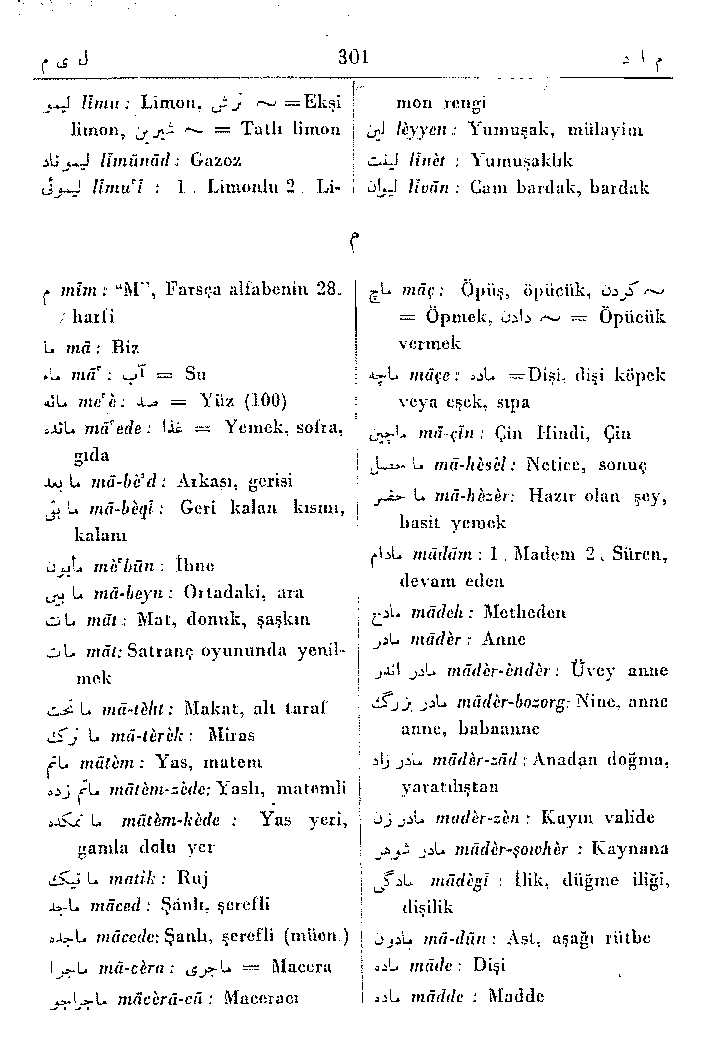 ل ی م 301 م ا د
لیمو lîmu : Limon, ترش ~ =Ekşi
limon, شیرین ~ = Tatlı limon
لیموناد lîmûnâd : Gazoz
لیموئی lîmu'î : 1 . Limonlu 2 . Li-
mon rengi
لین lèyyen : Yumuşak, mülayim
لینت lînèt : Yumuşaklık
لیوان lîvân : Cam bardak, bardak
م
م mîm : “M”, Farsça alfabenin 28.
harfi
ما mâ : Biz
ماء mâ' : آب = Su
مائه me'è : صد = Yüz (100)
مائده mâ'ede : غذا = Yemek, sofra,
gıda
ما بعد mâ-bè'd : Arkası, gerisi
ما بقی mâ-bèqî : Geri kalan kısım,
kalanı
مأبون mè'bûn : İbne
ما بین mâ-beyn : Ortadaki, ara
مات mât : Mat, donuk, şaşkın
مات mât: Satranç oyununda yenil-
mek
ما تحت mâ-tèht : Makat, alt taraf
ما ترک mâ-tèrèk : Miras
ماتم mâtèm : Yas, matem
ماتم زده mâtèm-zède: Yaslı, matemli
ما تمکده mâtèm-kède : Yas yeri,
gamla dolu yer
ما تیک matik : Ruj
ماجد mâced : Şânlı, şerefli
ماجده mâcede: Şanlı, şerefli (müen.)
ماجرا mâ-cèra : ماجری = Macera
ماجراجو mâcèrâ-cû : Maceracı
ماچ mâç : Öpüş, öpücük, کردن ~
= Öpmek, دادن ~ = Öpücük
vermek
ماچه mâçe : ماده =Dişi, dişi köpek
veya eşek, sıpa
ماچین mâ-çîn : Çin Hindi, Çin
ما حصل mâ-hèsèl : Netice, sonuç
ما حضر mâ-hèzèr: Hazır olan şey,
basit yemek
مادام mâdâm : 1 . Madem 2 . Süren,
devam eden
مادح mâdeh : Metheden
مادر mâdèr : Anne
مادر اندر mâdèr-èndèr : Üvey anne
مادر بزرگ mâdèr-bozorg: Nine, anne
anne, babaanne
مادر زاد mâdèr-zâd : Anadan doğma,
yaratılıştan
مادر زن madèr-zèn : Kayın valide
مادر شوهر mâdèr-şowhèr : Kaynana
مادگی mâdègî : İlik, düğme iliği,
dişilik
مادون mâ-dûn : Ast, aşağı rütbe
ماده mâde : Dişi
ماده mâdde : Madde